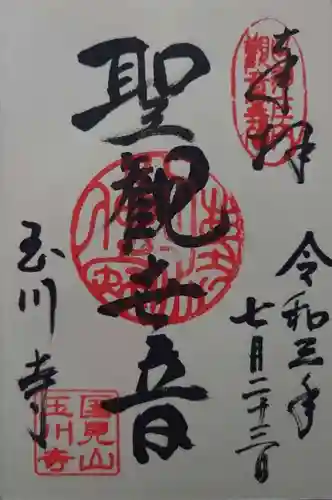 奉拝
令和三年
七月二十三日
聖観世音
玉川寺
国見山
玉川寺